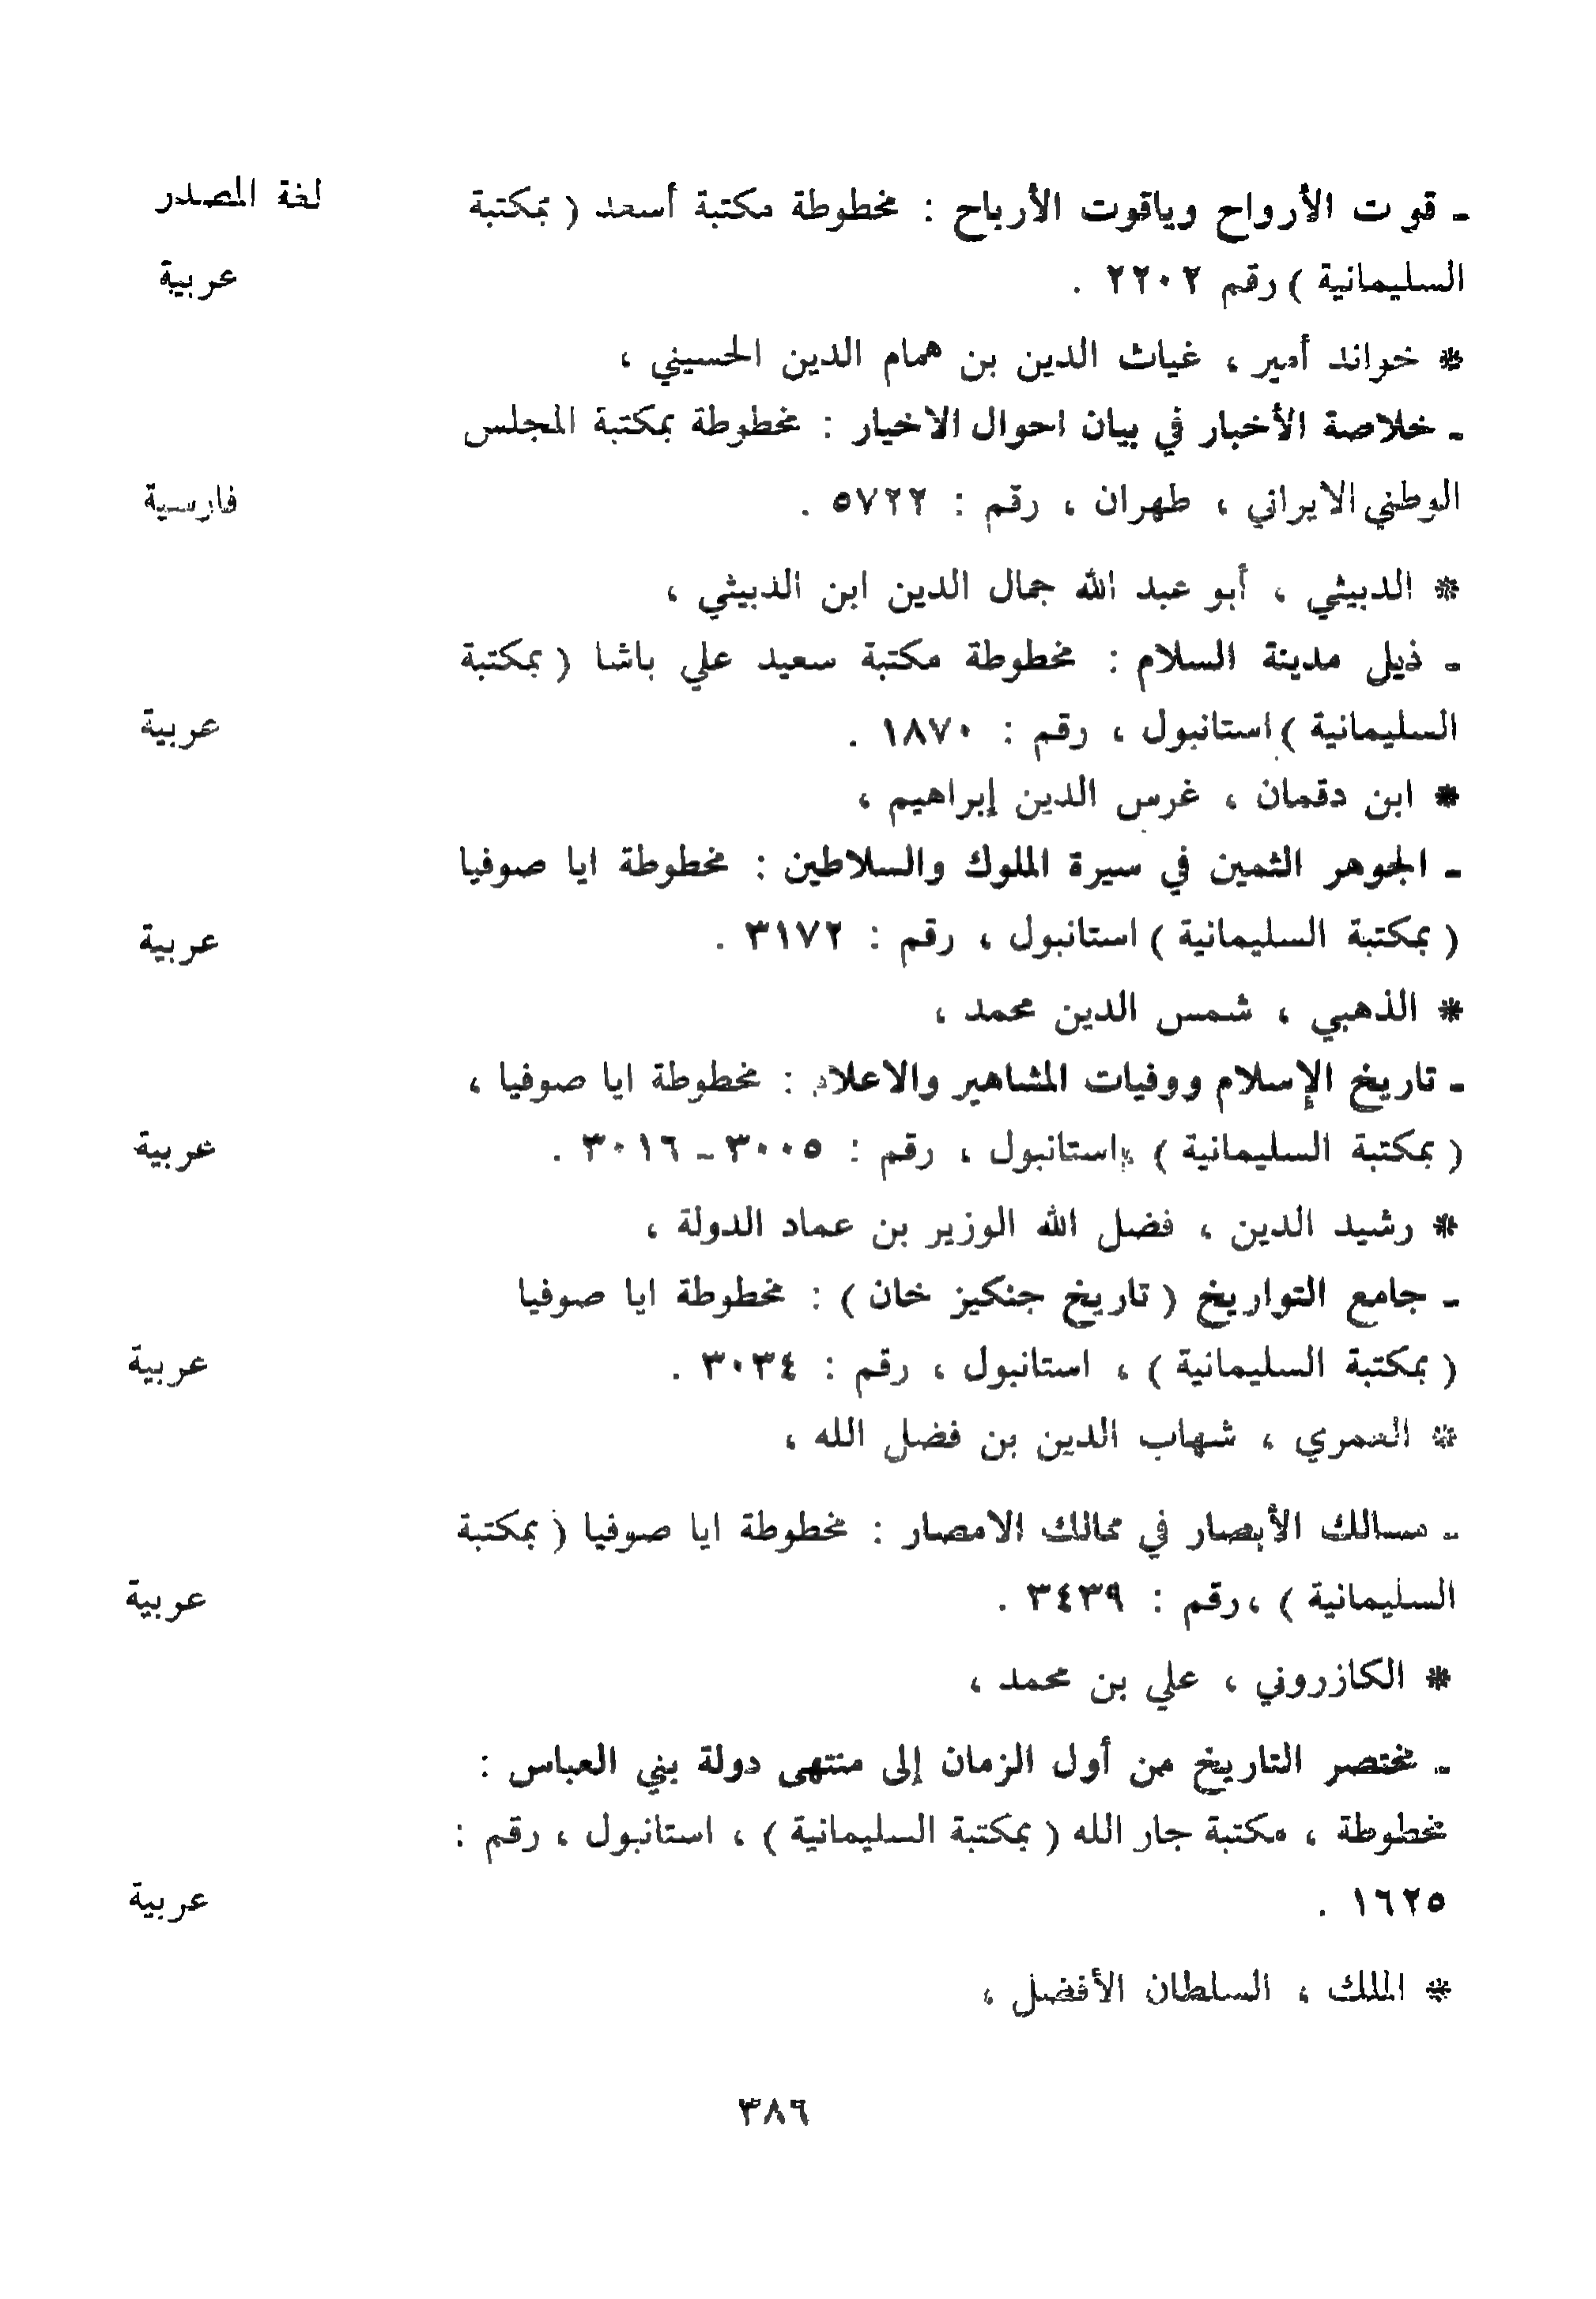 لغة المصدر
- قوت الأرواح وياقوت الأرباح : مخطوطة مكتبة أسعد ( بمكتبة
السليمانية ) رقم ٢٢٠٢ .
عربية
* خواند أمير ، غياث الدين بن همام الدين الحسيني ،
- خلاصة الأخبار في بيان احوال الاخيار : مخطوطة بمكتبة المجلس
الوطني الايراني ، طهران ، رقم : ٥٧٢٢ .
فارسية
* الدبيثي ، أبو عبد الله جمال الدين ابن الدبيثي ،
- ذيل مدينة السلام : مخطوطة مكتبة سعيد علي باشا ( بمكتبة
السليمانية ) استانبول ، رقم : ١٨٧٠ .
عربية
* ابن دقمان ، غرس الدين إبراهيم ،
- الجوهر الثمين في سيرة الملوك والسلاطين : مخطوطة ايا صوفيا
( بمكتبة السليمانية ) استانبول ، رقم : ٣١٧٢ .
عربية
* الذهبي ، شمس الدين محمد ،
- تاريخ الإسلام ووفيات المشاهير والاعلام : مخطوطة ايا صوفيا ،
( بمكتبة السليمانية ) استانبول ، رقم : ٣٠٠٥ - ٣٠١٦ .
عربية
* رشيد الدين ، فضل الله الوزير بن عماد الدولة ،
- جامع التواريخ ( تاريخ جنكيز خان ) : مخطوطة ايا صوفيا
( بمكتبة السليمانية ) ، استانبول ، رقم : ٣٠٣٤ .
عربية
* العمري ، شهاب الدين بن فضل الله ،
- مسالك الأبصار في ممالك الامصار : مخطوطة ايا صوفيا ( بمكتبة
السليمانية ) ، رقم : ٣٤٣٩ .
عربية
* الكازروني ، علي بن محمد ،
- مختصر التاريخ من أول الزمان إلى منتهى دولة بني العباس :
مخطوطة ، مكتبة جار الله ( بمكتبة السليمانية ) ، استانبول ، رقم :
١٦٢٥ .
عربية
* الملك ، السلطان الأفضل ،
٣٨٦